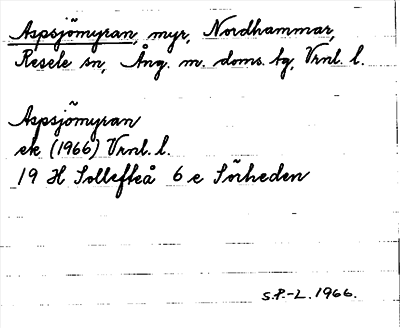 Aspsjömyran, myr, Nordhammar,
Resele sn, Ång. m. doms. tg, Vrnl. l.
Aspsjömyran
ek (1966) Vrnl. l.
19 H Sollefteå 6 e Sörheden
S.P.-L. 1966.